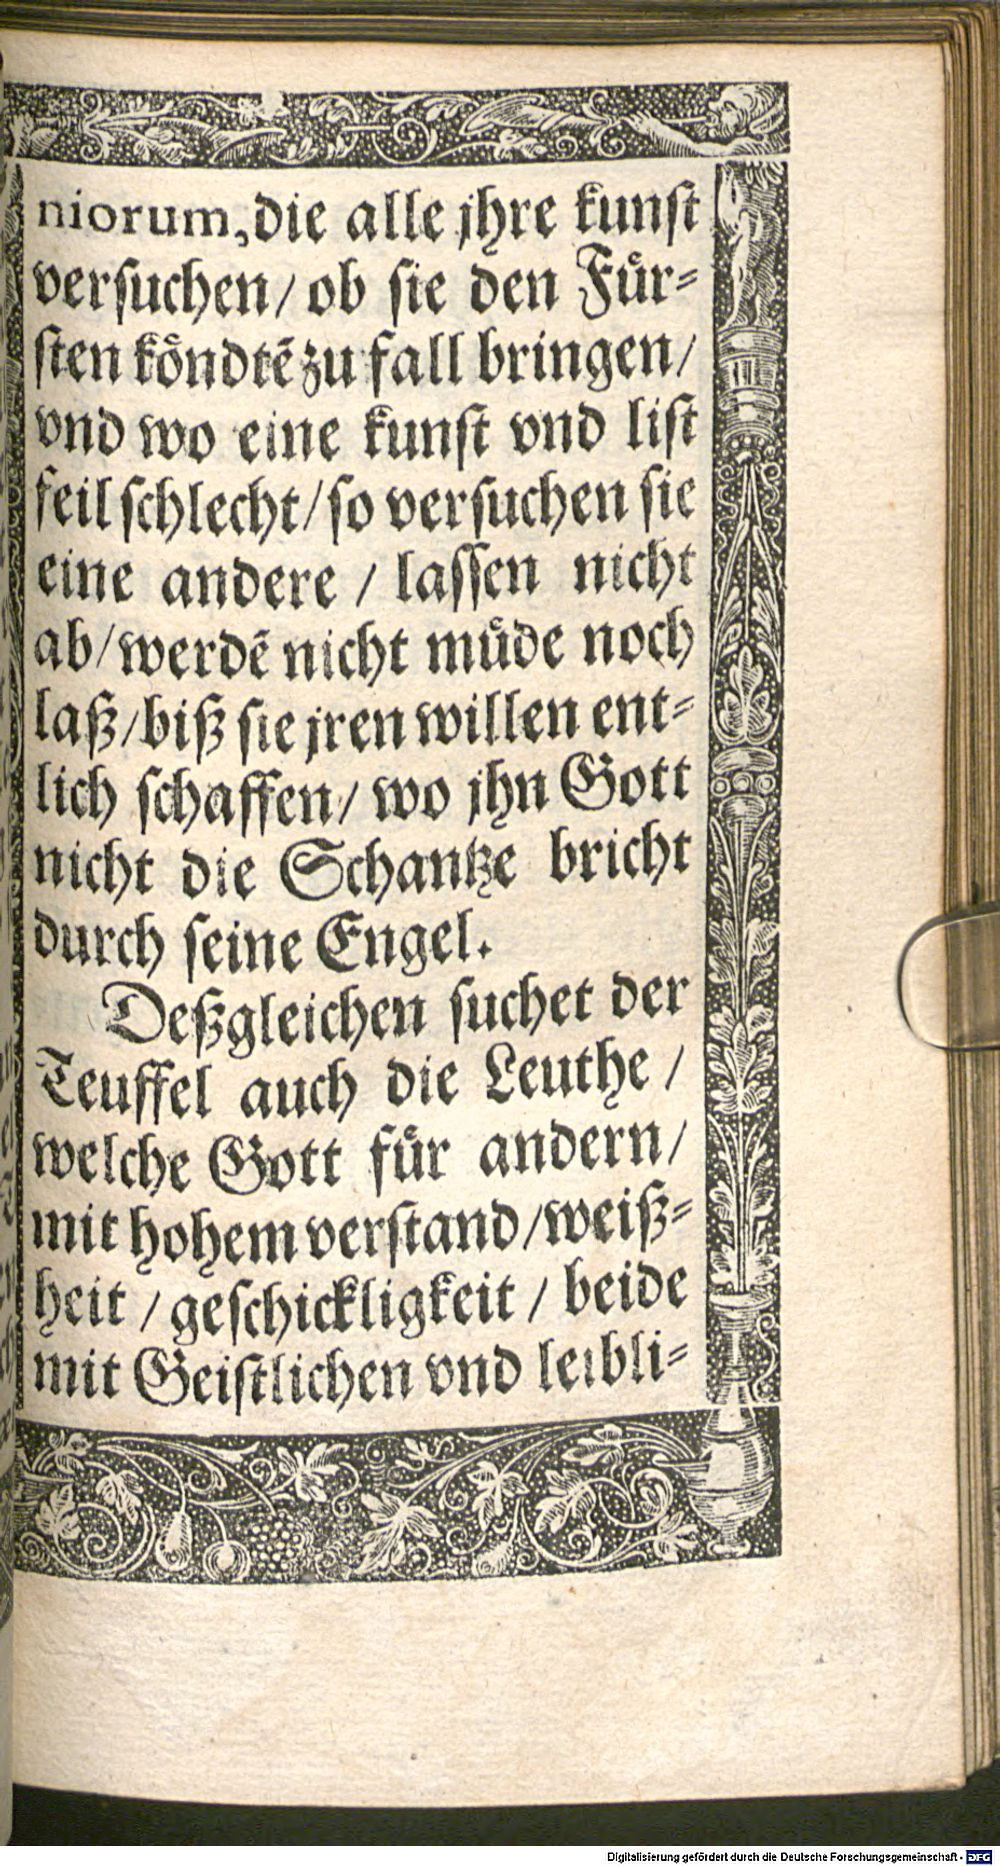 niorum, die alle jhre kunſt
verſuchen/ ob ſie den Fuͤr⸗
ſten koͤndtē zu fall bringen/
vnd wo eine kunſt vnd liſt
feil ſchlecht/ ſo verſuchen ſie
eine andere / laſſen nicht
ab/ werdē nicht muͤde noch
laß/ biß ſie jren willen ent⸗
lich ſchaffen/ wo jhn Gott
nicht die Schantze bricht
durch ſeine Engel.
Deßgleichen ſuchet der
Teuffel auch die Leuthe /
welche Gott fuͤr andern/
mit hohem verſtand/ weiß⸗
heit / geſchickligkeit / beide
mit Geiſtlichen vnd leibli⸗
Digitalisierung gefördert durch die Deutsche Forschungsgemeinschaft - DFG